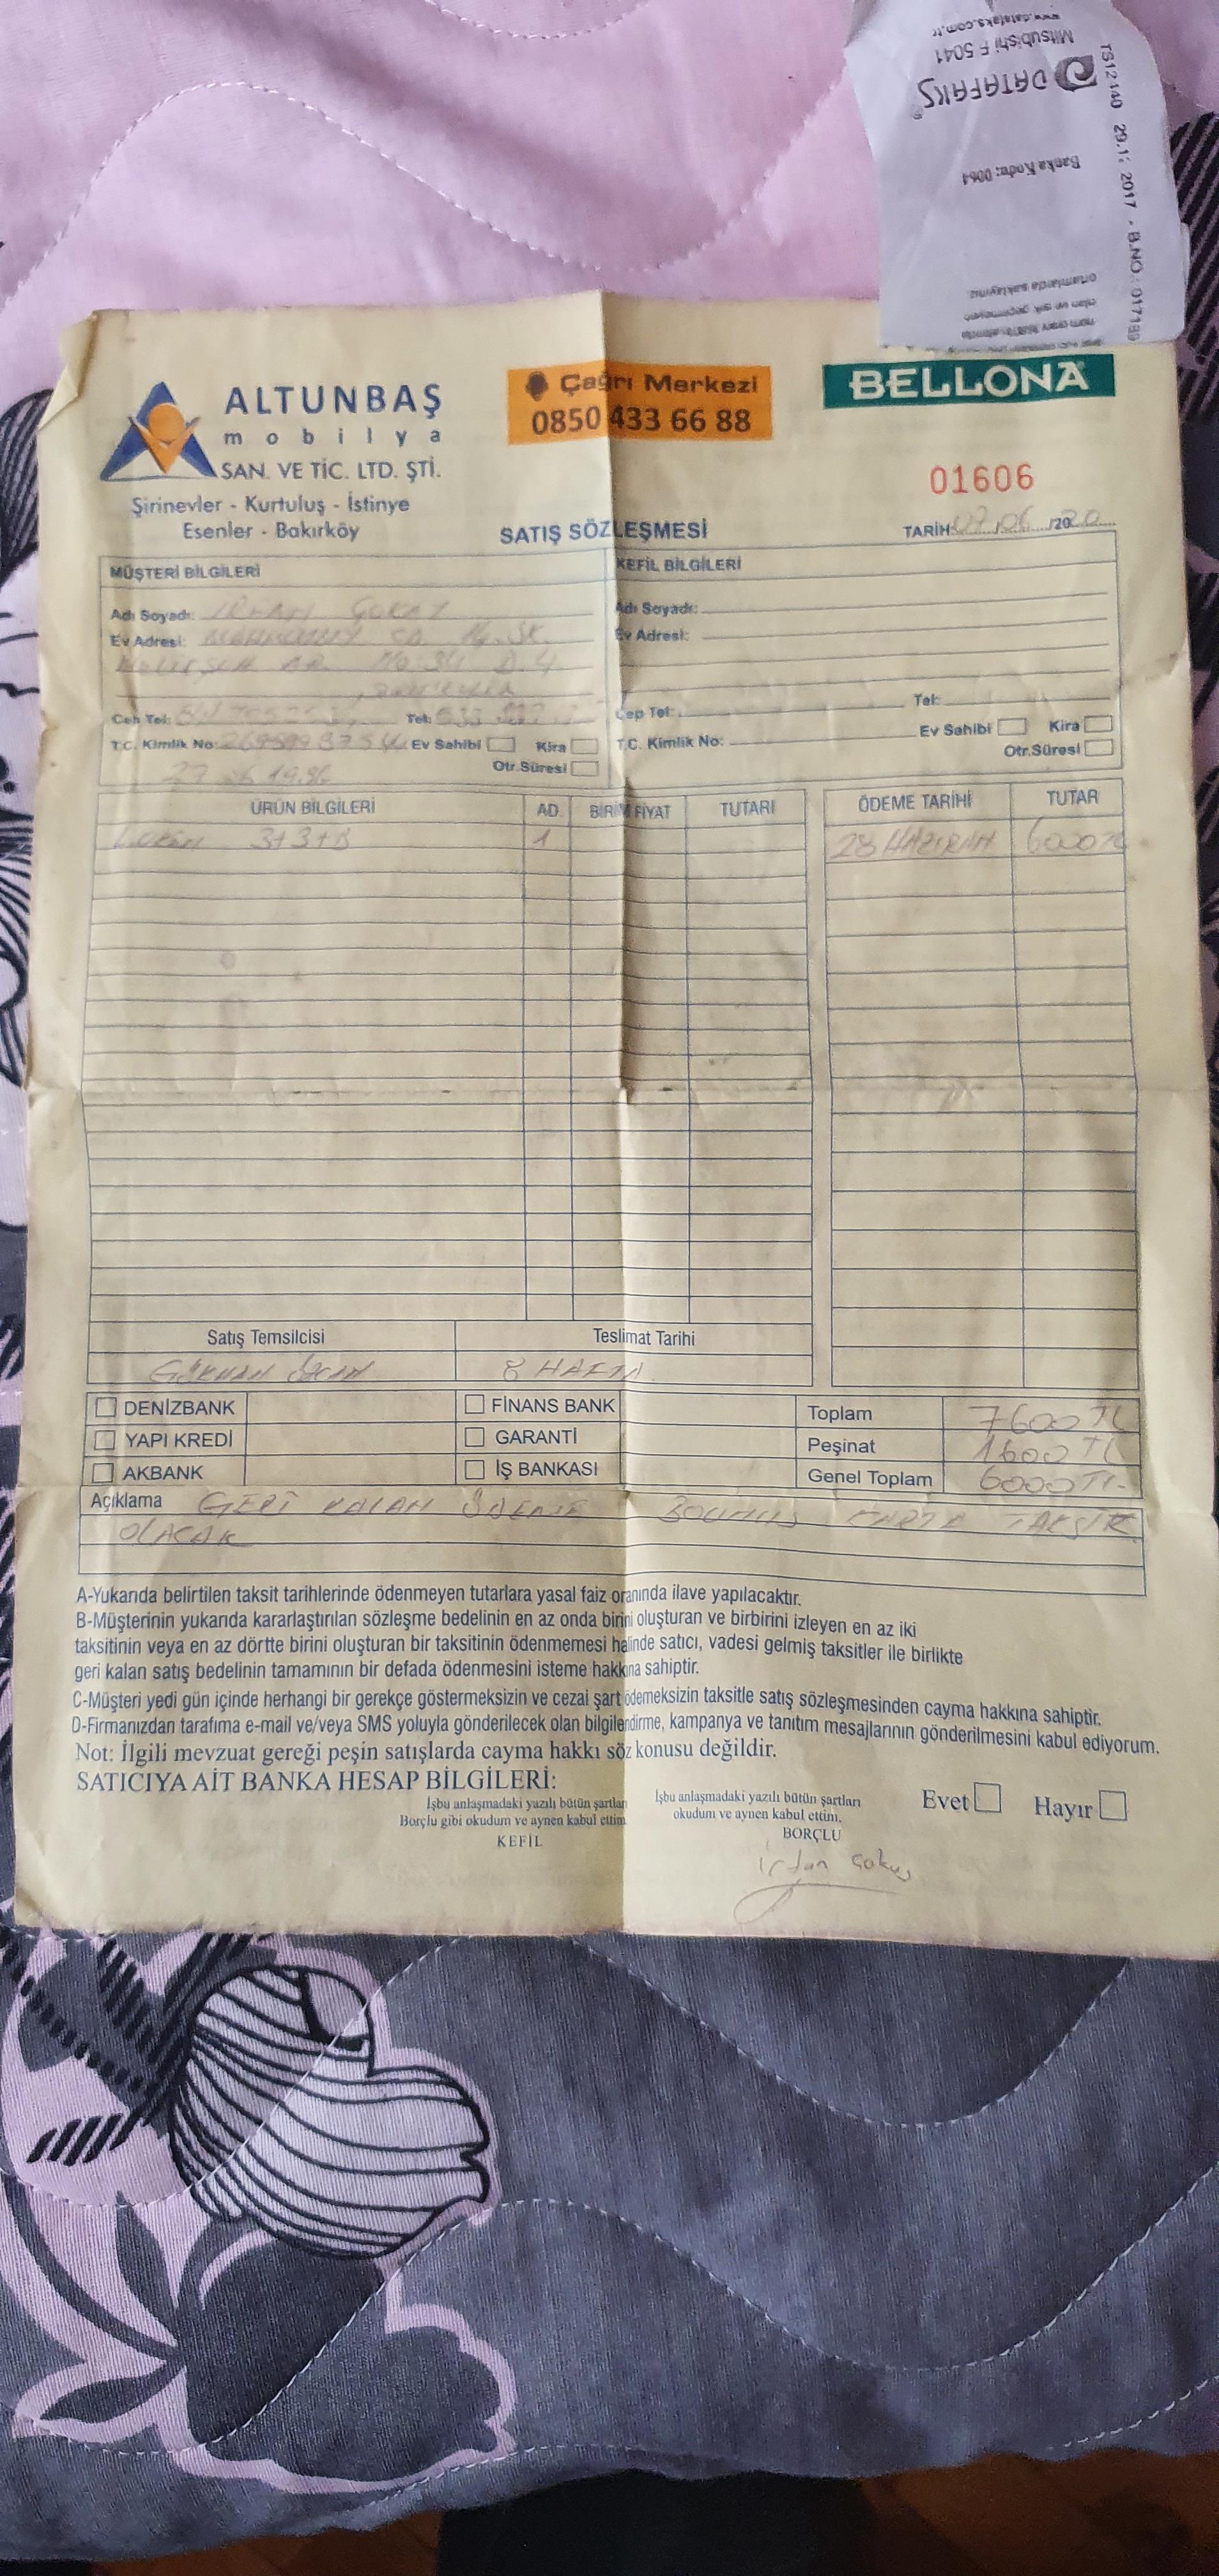 www.datafaks.com.tr
Mitsubishi F 5041
DATAFAKS
Banka Kodu: 0064
ortamlarda saklayınız
TS12140 29.1 2017 - B.NO: 017189
ALTUNBAŞ
mobilya
SAN. VE TİC. LTD. ŞTİ.
Şirinevler - Kurtuluş - İstinye
Esenler - Bakırköy
Çağrı Merkezi
0850 433 66 88
BELLONA
01606
SATIŞ SÖZLEŞMESİ
TARİH: 07/06/2020
MÜŞTERİ BİLGİLERİ
Adı Soyadı:
Ev Adresi:
No: 34 D.4
Cep Tel: Tel:
T.C. Kimlik No: Ev Sahibi Kira
Otr.Süresi
KEFİL BİLGİLERİ
Adı Soyadı:
Ev Adresi:
Tel:
Cep Tel:
Ev Sahibi Kira
T.C. Kimlik No:
Otr.Süresi
ÜRÜN BİLGİLERİ AD. BİRİM FİYAT TUTARI
3+3+B 1
ÖDEME TARİHİ TUTAR
28 HAZİRAN 6000 TL
Satış Temsilcisi Teslimat Tarihi
GÖKHAN ÖZCAN 8 HAFTA
DENİZBANK FİNANS BANK
YAPI KREDİ GARANTİ
AKBANK İŞ BANKASI
Toplam 7600 TL
Peşinat 1600 TL
Genel Toplam 6000 TL
Açıklama GERİ KALAN ÖDEME TAKSİT
OLACAK
A-Yukarıda belirtilen taksit tarihlerinde ödenmeyen tutarlara yasal faiz oranında ilave yapılacaktır.
B-Müşterinin yukarıda kararlaştırılan sözleşme bedelinin en az onda birini oluşturan ve birbirini izleyen en az iki
taksitinin veya en az dörtte birini oluşturan bir taksitinin ödenmemesi halinde satıcı, vadesi gelmiş taksitler ile birlikte
geri kalan satış bedelinin tamamının bir defada ödenmesini isteme hakkına sahiptir.
C-Müşteri yedi gün içinde herhangi bir gerekçe göstermeksizin ve cezai şart ödemeksizin taksitle satış sözleşmesinden cayma hakkına sahiptir.
D-Firmanızdan tarafıma e-mail ve/veya SMS yoluyla gönderilecek olan bilgilendirme, kampanya ve tanıtım mesajlarının gönderilmesini kabul ediyorum.
Not: İlgili mevzuat gereği peşin satışlarda cayma hakkı söz konusu değildir.
SATICIYA AİT BANKA HESAP BİLGİLERİ:
Evet Hayır
İşbu anlaşmadaki yazılı bütün şartları
Borçlu gibi okudum ve aynen kabul ettim
KEFİL
İşbu anlaşmadaki yazılı bütün şartları
okudum ve aynen kabul ettim.
BORÇLU
irfan